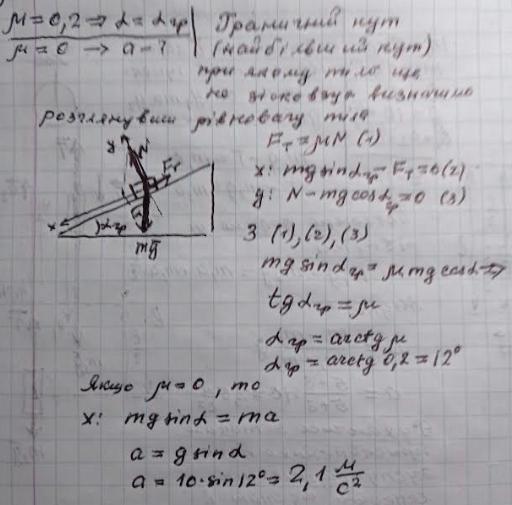 μ = 0,2 → α = αгр
μ = 0 → a - ?
Граничний кут
(найбільший кут)
при якому тіло ще
не зісковзує визначимо
розглянувши рівновагу тіла
Fт = μN (1)
x: mg sin αгр - Fт = 0 (2)
y: N - mg cos αгр = 0 (3)
y
N
Fт
x
αгр
mg
З (1), (2), (3)
mg sin αгр = μ mg cos αгр
tg αгр = μ
αгр = arctg μ
αгр = arctg 0,2 = 12°
Якщо μ = 0, то
x: mg sin α = ma
a = g sin α
a = 10·sin 12° = 2,1 м/с²